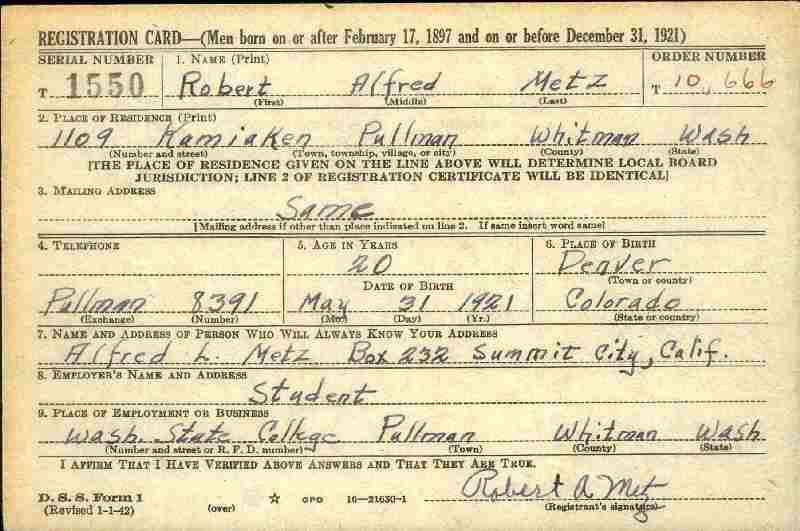 REGISTRATION CARD—(Men born on or after February 17, 1897 and on or before December 31, 1921)
SERIAL NUMBER 1. NAME (Print) ORDER NUMBER
T 1550 Robert Alfred Metz T 10,666
(First) (Middle) (Last)
2. PLACE OF RESIDENCE (Print)
1109 Kamiaken Pullman Whitman Wash
(Number and street) (Town, township, village, or city) (County) (State)
[THE PLACE OF RESIDENCE GIVEN ON THE LINE ABOVE WILL DETERMINE LOCAL BOARD
JURISDICTION; LINE 2 OF REGISTRATION CERTIFICATE WILL BE IDENTICAL]
3. MAILING ADDRESS
Same
[Mailing address if other than place indicated on line 2. If same insert word same]
4. TELEPHONE 5. AGE IN YEARS 6. PLACE OF BIRTH
20 Denver
DATE OF BIRTH (Town or county)
Pullman 8391 May 31 1921 Colorado
(Exchange) (Number) (Mo.) (Day) (Yr.) (State or country)
7. NAME AND ADDRESS OF PERSON WHO WILL ALWAYS KNOW YOUR ADDRESS
Alfred L. Metz Box 232 Summit City, Calif.
8. EMPLOYER'S NAME AND ADDRESS
Student
9. PLACE OF EMPLOYMENT OR BUSINESS
Wash. State College Pullman Whitman Wash
(Number and street or R. F. D. number) (Town) (County) (State)
I AFFIRM THAT I HAVE VERIFIED ABOVE ANSWERS AND THAT THEY ARE TRUE.
Robert A Metz
D. S. S. Form 1 GPO 16—21630-1 (Registrant's signature)
(Revised 1-1-42) (over)